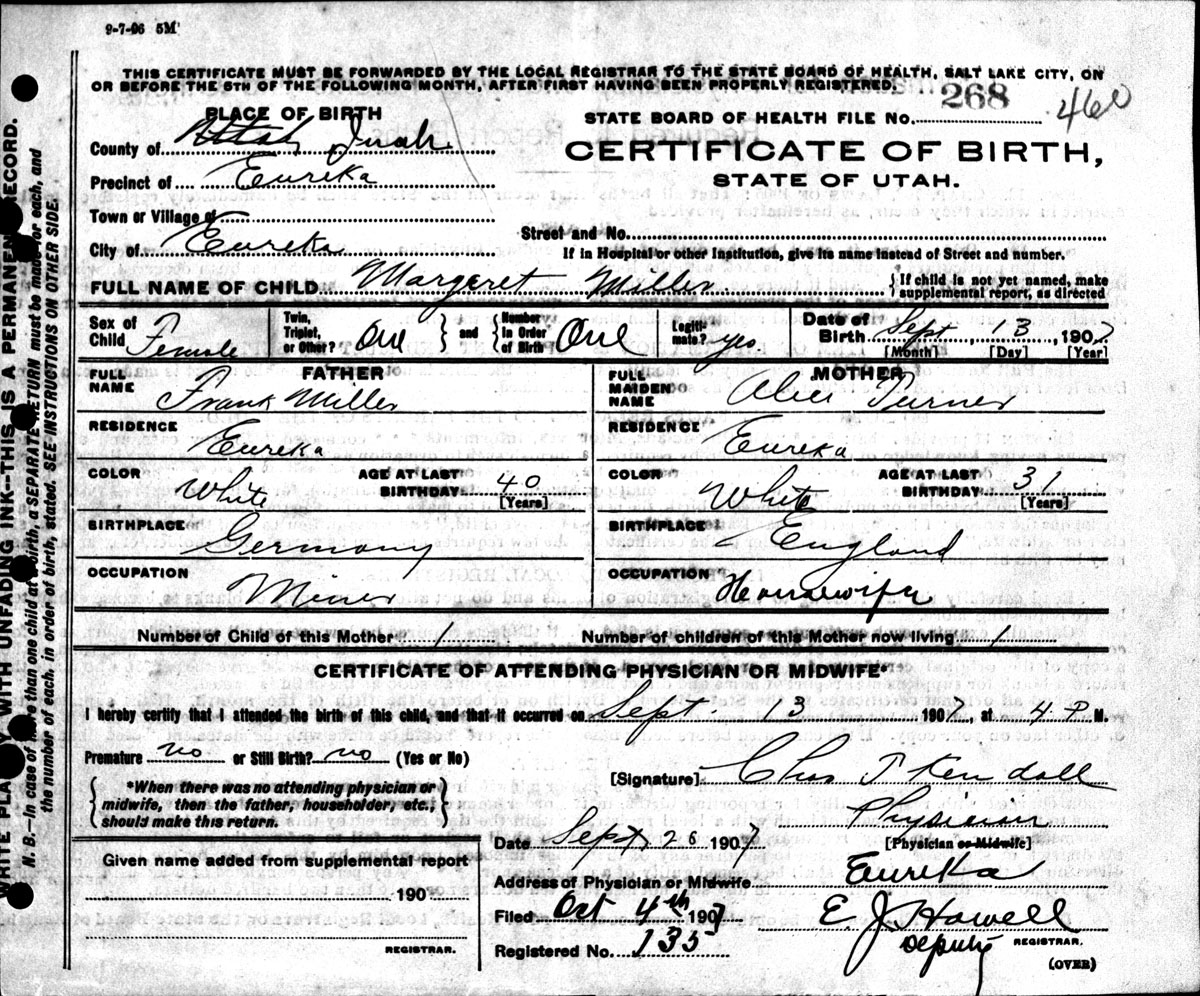 9-7-06 5M
THIS CERTIFICATE MUST BE FORWARDED BY THE LOCAL REGISTRAR TO THE STATE BOARD OF HEALTH, SALT LAKE CITY, ON
OR BEFORE THE 5TH OF THE FOLLOWING MONTH, AFTER FIRST HAVING BEEN PROPERLY REGISTERED.
PLACE OF BIRTH
STATE BOARD OF HEALTH FILE NO. 268 460
County of Utah Juab
CERTIFICATE OF BIRTH,
Precinct of Eureka
STATE OF UTAH.
Town or Village of
Street and No.
City of Eureka
If in Hospital or other Institution, give its name instead of Street and number.
FULL NAME OF CHILD Margaret Miller { If child is not yet named, make supplemental report, as directed
Sex of Child Female Twin, Triplet, or Other? One } and { Number in Order of Birth One Legiti- mate? yes Date of Birth Sept, 13, 1907
[Month] [Day] [Year]
FATHER MOTHER
FULL NAME Frank Miller FULL MAIDEN NAME Alice Turner
RESIDENCE Eureka RESIDENCE Eureka
COLOR White AGE AT LAST BIRTHDAY 40 [Years] COLOR White AGE AT LAST BIRTHDAY 31 [Years]
BIRTHPLACE Germany BIRTHPLACE England
OCCUPATION Miner OCCUPATION Housewife
Number of Child of this Mother 1 Number of children of this Mother now living 1
CERTIFICATE OF ATTENDING PHYSICIAN OR MIDWIFE*
I hereby certify that I attended the birth of this child, and that it occurred on Sept. 13 1907, at 4 P M.
Premature no or Still Birth? no (Yes or No)
{ *When there was no attending physician or midwife, then the father, householder, etc., should make this return. }
[Signature] Chas T Kendall
Physician
[Physician or Midwife]
Date Sept 26 1907
Given name added from supplemental report
190
REGISTRAR.
Address of Physician or Midwife Eureka
Filed Oct 4th 1907 E. J. Howell
Deputy REGISTRAR.
Registered No. 135
(OVER)
WRITE PLAINLY WITH UNFADING INK--THIS IS A PERMANENT RECORD.
N. B.--In case of more than one child at a birth, a SEPARATE RETURN must be made for each, and
the number of each, in order of birth, stated. SEE INSTRUCTIONS ON OTHER SIDE.